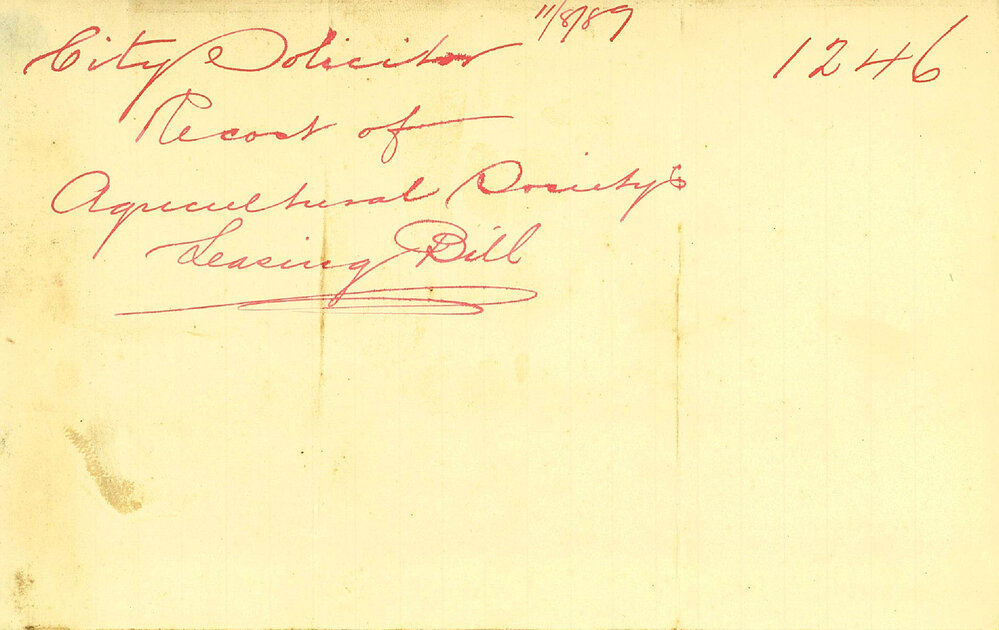 11/8/89
City Solicitor 1246
Re cost of
Agricultural Society's
Leasing Bill